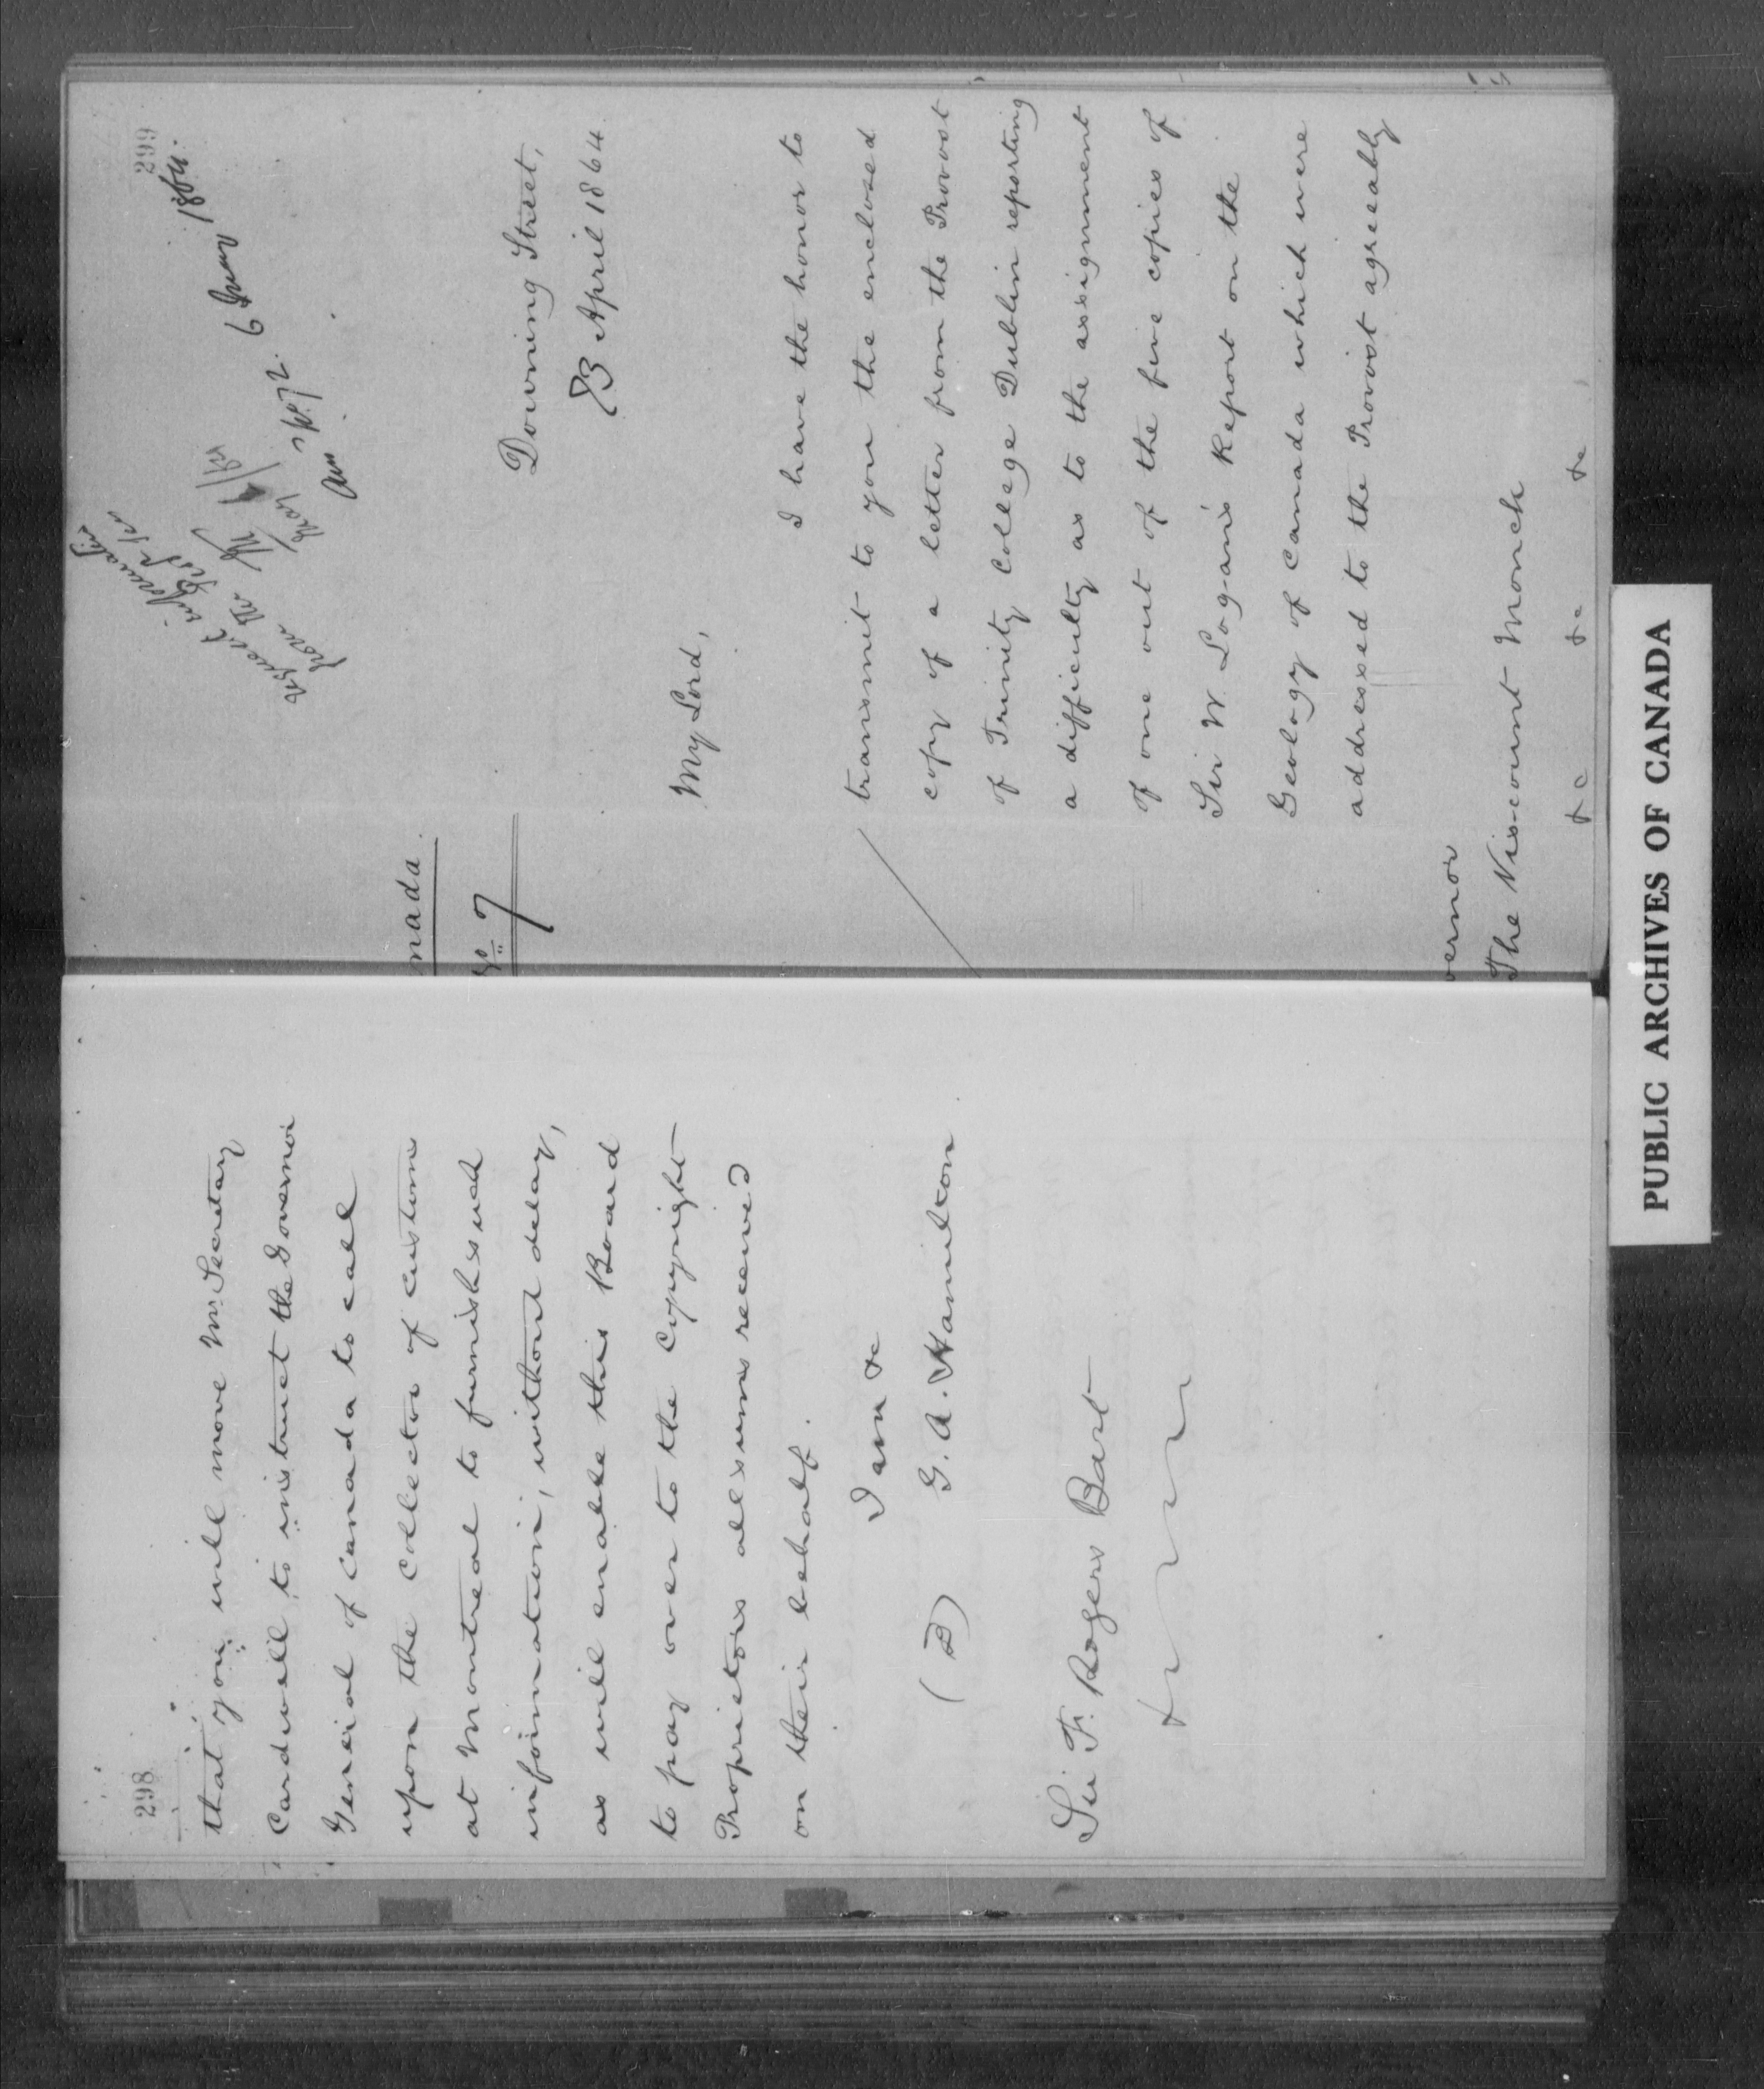 298
that you will move Mr. Secretary
Cardwell to instruct the Governor
General of Canada to call
upon the Collector of Customs
at Montreal to furnish such
information, without delay,
as will enable this Board
to pay over to the Copyright
Proprietors all sums received
on their behalf.
I am &c
(D) G. A. Hamilton
Sir F. Rogers Bart
299
6 May 1864.
request information
from the
nada
No 7
Downing Street,
23 April 1864.
My Lord,
I have the honor to
transmit to you the enclosed
copy of a letter from the Provost
of Trinity College Dublin reporting
a difficulty as to the assignment
of one out of the five copies of
Sir W. Logan's Report on the
Geology of Canada which were
addressed to the Provost agreeably
vernor
The Viscount Monck
&c &c &c
PUBLIC ARCHIVES OF CANADA